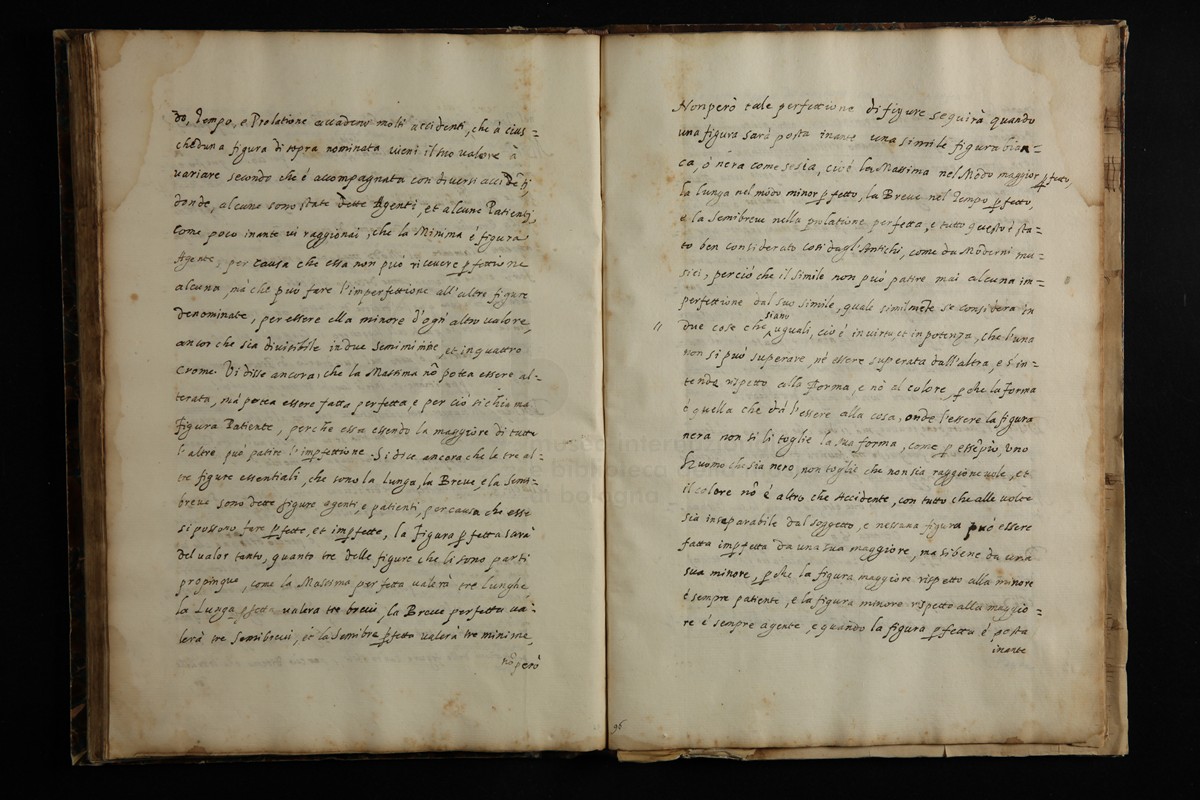 do, Tempo, e Prolatione accadeno molti accidenti, che à cias=
cheduna figura di sopra nominata vieni il suo valore à
variare secondo che é accompagnata con diversi accidẽti,
donde, alcune sono state dette Agenti, et alcune Patienti,
come poco inante vi raggionai, che la Minima é figura
Agente, per causa che essa non può ricevere p̱fettione
alcuna, mà che può fare l'imperfettione all'altre figure
denominate, per essere ella minore d'ogn' altro valore,
ancor che sia divisibile in due semiminime, et in quattro
Crome. Vi disse ancora, che la Massima nõ potea essere al=
terata, mà potea essere fatta perfetta, e per ciò si chiama
Figura Patiente, perche essa essendo la maggiore di tutte
l'altre può patire l'imp̱fettione. Si dice ancora che le tre al=
tre figure essentiali, che sono la lunga, la Breve, e la Semi=
breve sono dette figure agenti, e patienti, per causa che esse
si possono fare p̱fette, et imp̱fette, la Figura p̱fetta sarà
del valor tanto, quanto tre delle figure che li sono parti
propinque, come la Massima perfetta valerà tre Lunghe
la Lunga p̱fetta valera tre brevi, la Breve perfetta va=
lerà tre semibrevi, et la Semibre p̱fetta valerà tre minime,
nõ però
96
Non però tale perfettione di figure seguirà quando
una figura sarà posta inante una simile figura bian=
ca, ó nera come se sia, cioé la Massima nel Modo maggior p̱fetto,
la lunga nel modo minor p̱fetto, la Breve nel Tempo p̱fetto,
e la Semibreve nella prolatione perfetta, e tutto questo é sta=
to ben considerato così dagl'Antichi, come da Moderni mu=
sici, perciò che il simile non può patire mai alcuna im=
perfettione dal suo simile, quale similmẽte se considera in
due cose che siano uguali, ció é in virtu, et in potenza, che l'una
non si può superare, né essere superata dall'altra, e s'in=
tende rispetto alla Forma, e nõ al colore, p̱che la Forma
é quella che dà l'essere alla cosa, onde l'essere la figura
nera non si li toglie la sua forma, come p̱ essẽpio, uno
huomo che sia nero, non toglie che non sia raggionevole, et
il colore nõ é altro che Accidente, con tutto che alle volte
sia inseparabile dal soggetto, e nessuna figura può essere
fatta imp̱fetta da una sua maggiore, ma si bene da una
sua minore, p̱che la figura maggiore rispetto alla minore
é sempre patiente, e la figura minore rispetto alla maggio=
re é sempre agente, e quando la figura p̱fetta é posta
inante